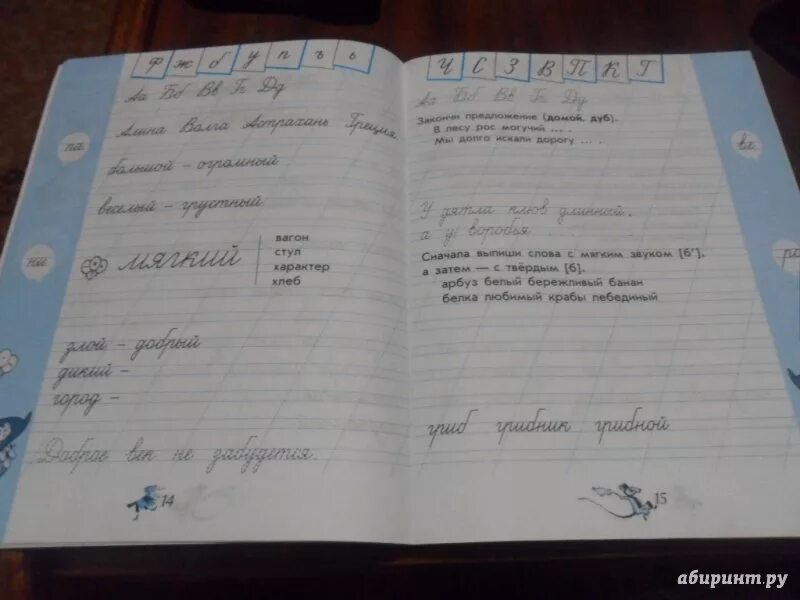 ф ж б у п ъ ь
Аа Бб Вв Гг Дд
Алина Волга Астрахань Греция.
большой – огромный
па
веселый – грустный
ни
мягкий
вагон
стул
характер
хлеб
злой – добрый
дикий –
город –
Доброе век не забудется.
14
Ч С З В П К Г
Аа Бб Вв Гг Дд
Закончи предложение (домой, дуб).
В лесу рос могучий ... .
Мы долго искали дорогу ... .
вл
У дятла клюв длинный,
а у воробья ...
Сначала выпиши слова с мягким звуком [б'],
а затем — с твёрдым [б].
арбуз белый бережливый банан
белка любимый крабы лебединый
ра
гриб грибник грибной
15
абиринт.ру